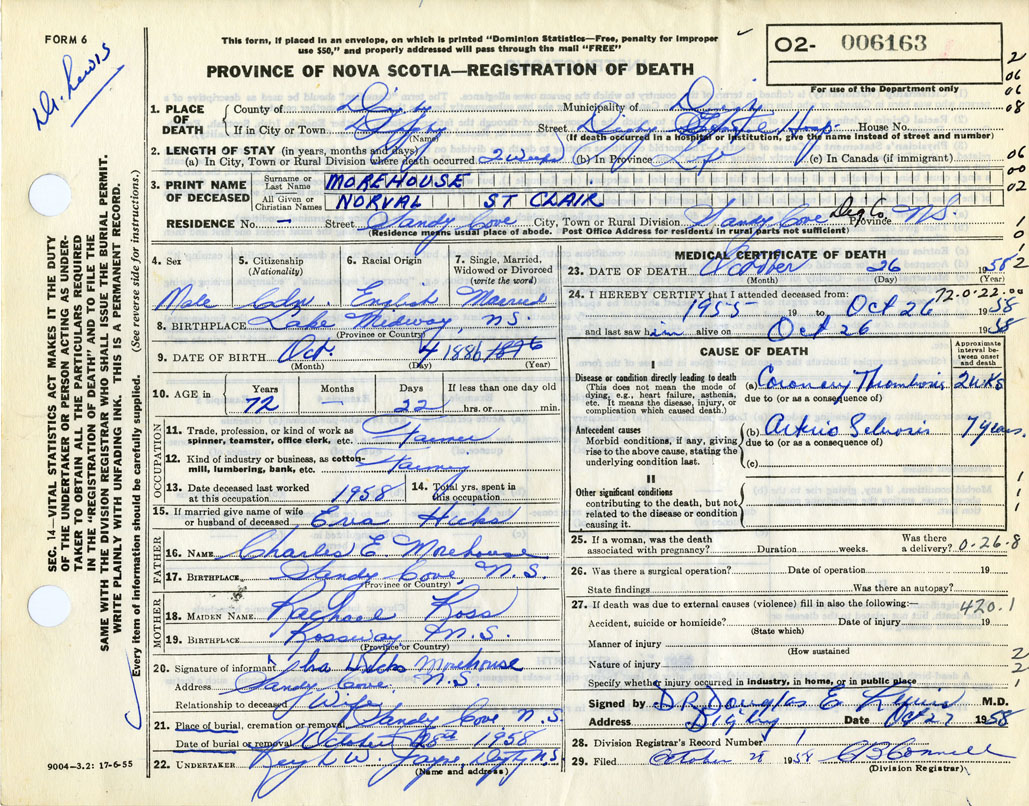 FORM 6
Dr. Lewis
This form, if placed in an envelope, on which is printed "Dominion Statistics—Free, penalty for improper
use $50," and properly addressed will pass through the mail "FREE"
PROVINCE OF NOVA SCOTIA—REGISTRATION OF DEATH
02- 006163
For use of the Department only
2
06
06
08
06
00
02
1
0
1
2
1. PLACE OF DEATH
County of Digby Municipality of Digby
If in City or Town Digby Street Digby General Hosp House No.
(Name) (If death occurred in a hospital or institution, give the name instead of street and number)
2. LENGTH OF STAY (in years, months and days)
(a) In City, Town or Rural Division where death occurred 2 Weeks (b) In Province Life (c) In Canada (if immigrant)
3. PRINT NAME OF DECEASED
Surname or Last Name MOREHOUSE
All Given or Christian Names NORVAL ST CLAIR
RESIDENCE No. — Street Sandy Cove City, Town or Rural Division Sandy Cove Dig Co Province N.S.
(Residence means usual place of abode. Post Office Address for residents in rural parts not sufficient)
4. Sex
Male
5. Citizenship
(Nationality)
Cdn.
6. Racial Origin
English
7. Single, Married,
Widowed or Divorced
(write the word)
Married
8. BIRTHPLACE Lake Midway, N.S.
(Province or Country)
9. DATE OF BIRTH Oct. 4 1886 1896
(Month) (Day) (Year)
10. AGE in
Years Months Days If less than one day old
72 — 22 hrs. or min.
OCCUPATION
11. Trade, profession, or kind of work as
spinner, teamster, office clerk, etc. Farmer
12. Kind of industry or business, as cotton-
mill, lumbering, bank, etc. Farming
13. Date deceased last worked
at this occupation 1958
14. Total yrs. spent in
this occupation
15. If married give name of wife
or husband of deceased Eva Hicks
FATHER
16. NAME Charles E Morehouse
17. BIRTHPLACE Sandy Cove, N.S.
(Province or Country)
MOTHER
18. MAIDEN NAME Rachael Ross
19. BIRTHPLACE Rossway N.S.
(Province or Country)
20. Signature of informant Eva Hicks Morehouse
Address Sandy Cove, N.S.
Relationship to deceased Wife
21. Place of burial, cremation or removal Sandy Cove N.S.
Date of burial or removal October 28th 1958
22. UNDERTAKER W. Jayne Digby N.S.
(Name and address)
MEDICAL CERTIFICATE OF DEATH
23. DATE OF DEATH October 26 1958
(Month) (Day) (Year)
72.0.22.00
24. I HEREBY CERTIFY that I attended deceased from:
1955 19 to Oct 26 1958
and last saw him alive on Oct 26 1958
CAUSE OF DEATH
Approximate
interval be-
tween onset
and death
I
Disease or condition directly leading to death
(This does not mean the mode of
dying, e.g., heart failure, asthenia,
etc. It means the disease, injury, or
complication which caused death.)
(a) Coronary Thrombosis 2 wks
due to (or as a consequence of)
Antecedent causes
Morbid conditions, if any, giving
rise to the above cause, stating the
underlying condition last.
(b) Arterio Sclerosis 7 years.
due to (or as a consequence of)
(c)
II
Other significant conditions
contributing to the death, but not
related to the disease or condition
causing it.
1
1
1
25. If a woman, was the death
associated with pregnancy? Duration weeks. Was there
a delivery? 0-26-8
26. Was there a surgical operation? Date of operation 19
State findings Was there an autopsy?
27. If death was due to external causes (violence) fill in also the following:— 420.1
Accident, suicide or homicide? Date of injury 19
(State which)
Manner of injury
(How sustained
Nature of injury
Specify whether injury occurred in industry, in home, or in public place
2
2
1
Signed by DR Douglas E Lewis M.D.
Address Digby Date Oct 27 1958
28. Division Registrar's Record Number
29. Filed October 28 1958
(Division Registrar)
SEC. 14—VITAL STATISTICS ACT MAKES IT THE DUTY
OF THE UNDERTAKER OR PERSON ACTING AS UNDER-
TAKER TO OBTAIN ALL THE PARTICULARS REQUIRED
IN THE "REGISTRATION OF DEATH" AND TO FILE THE
SAME WITH THE DIVISION REGISTRAR WHO SHALL ISSUE THE BURIAL PERMIT.
WRITE PLAINLY WITH UNFADING INK. THIS IS A PERMANENT RECORD.
Every item of information should be carefully supplied. (See reverse side for instructions.)
9004—3.2: 17-6-55